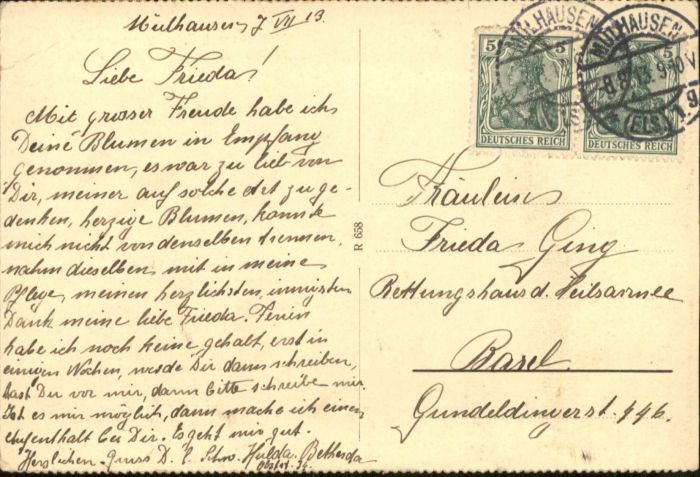 Mülhausen 7 VII 13.
Liebe Frieda!
Mit grosser Freude habe ich
Deine Blumen in Empfang
genommen, es war zu lieb von
Dir, meiner auf solche Art zu ge-
denken, herzige Blumen, konnte
mich nicht von denselben trennen,
nahm dieselben mit in meine
Pflege, meinen herzlichsten, innigsten
Dank meine liebe Frieda. Ferien
habe ich noch keine gehabt, erst in
einigen Wochen, werde Dir dann schreiben,
hast Du vor mir, dann bitte schreibe mir.
Ist es mir möglich, dann mache ich einen
Aufenthalt bei Dir. Es geht mir gut.
Herzlichen Gruss D. l. Schw. Hulda. Bethesda
34.
R 658
5 5
DEUTSCHES REICH
5
DEUTSCHES REICH
MÜLHAUSEN
MÜLHAUSEN
8.8.13. 9-10 V.
(ELS) 1 g
Fräulein
Frieda Ging
Rettungshaus d. Heilsarmee
Basel.
Gundeldingerst. 446.